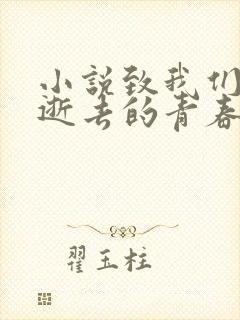 小説致我们
逝去的青春
翟玉柱